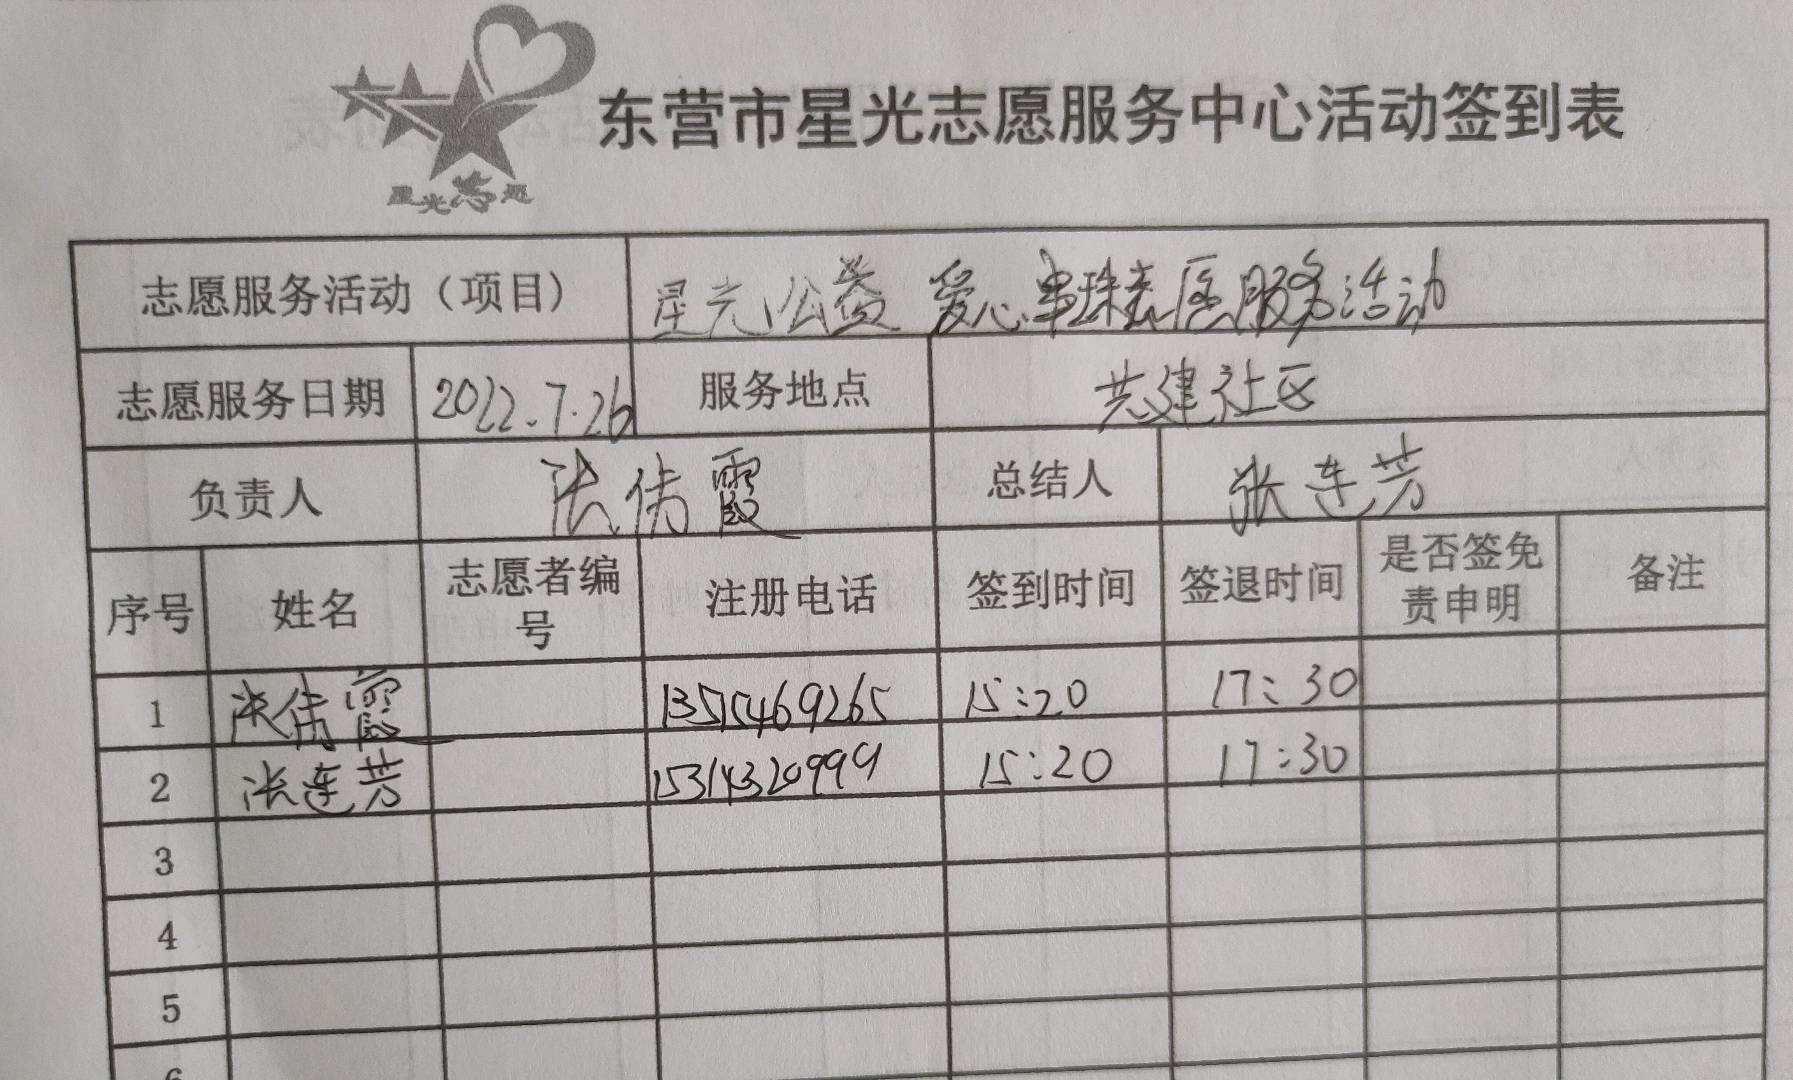 东营市星光志愿服务中心活动签到表
星光志愿
志愿服务活动（项目） 星光公益 爱心串珠 服务活动
志愿服务日期 2022.7.26 服务地点 共建社区
负责人 张倩霞 总结人 张连芳
序号 姓名 志愿者编号 注册电话 签到时间 签退时间 是否签免责申明 备注
1 张倩霞 15:20 17:30
2 张连芳 15314320999 15:20 17:30
3
4
5
6